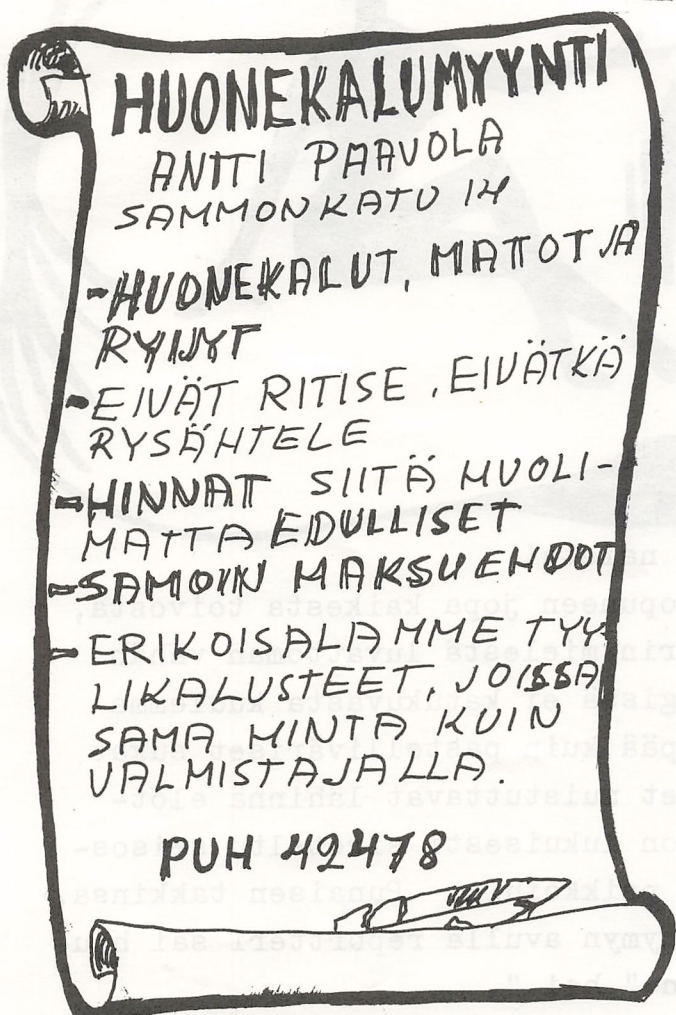 HUONEKALUMYYNTI
ANTTI PAAVOLA
SAMMONKATU 14
-HUONEKALUT, MATTOT JA
RYIJYT
-EIVÄT RITISE, EIVÄTKÄ
RYSÄHTELE
-HINNAT SIITÄ HUOLI-
MATTA EDULLISET
-SAMOIN MAKSUEHDOT
- ERIKOISALAMME TYY-
LIKALUSTEET, JOISSA
SAMA HINTA KUIN
VALMISTAJALLA.
PUH 42478